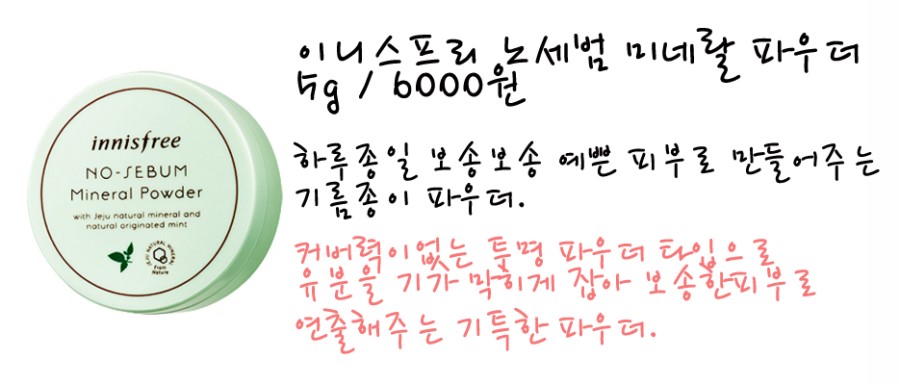 innisfree
NO-SEBUM
Mineral Powder
with Jeju natural mineral and
natural originated mint
JEJU NATURAL MINERAL
From
Nature
이니스프리 노세범 미네랄 파우더
5g / 6000원
하루종일 보송보송 예쁜 피부로 만들어주는
기름종이 파우더.
커버력이없는 투명 파우더 타입으로
유분을 기가 막히게 잡아 보송한피부로
연출해주는 기특한 파우더.